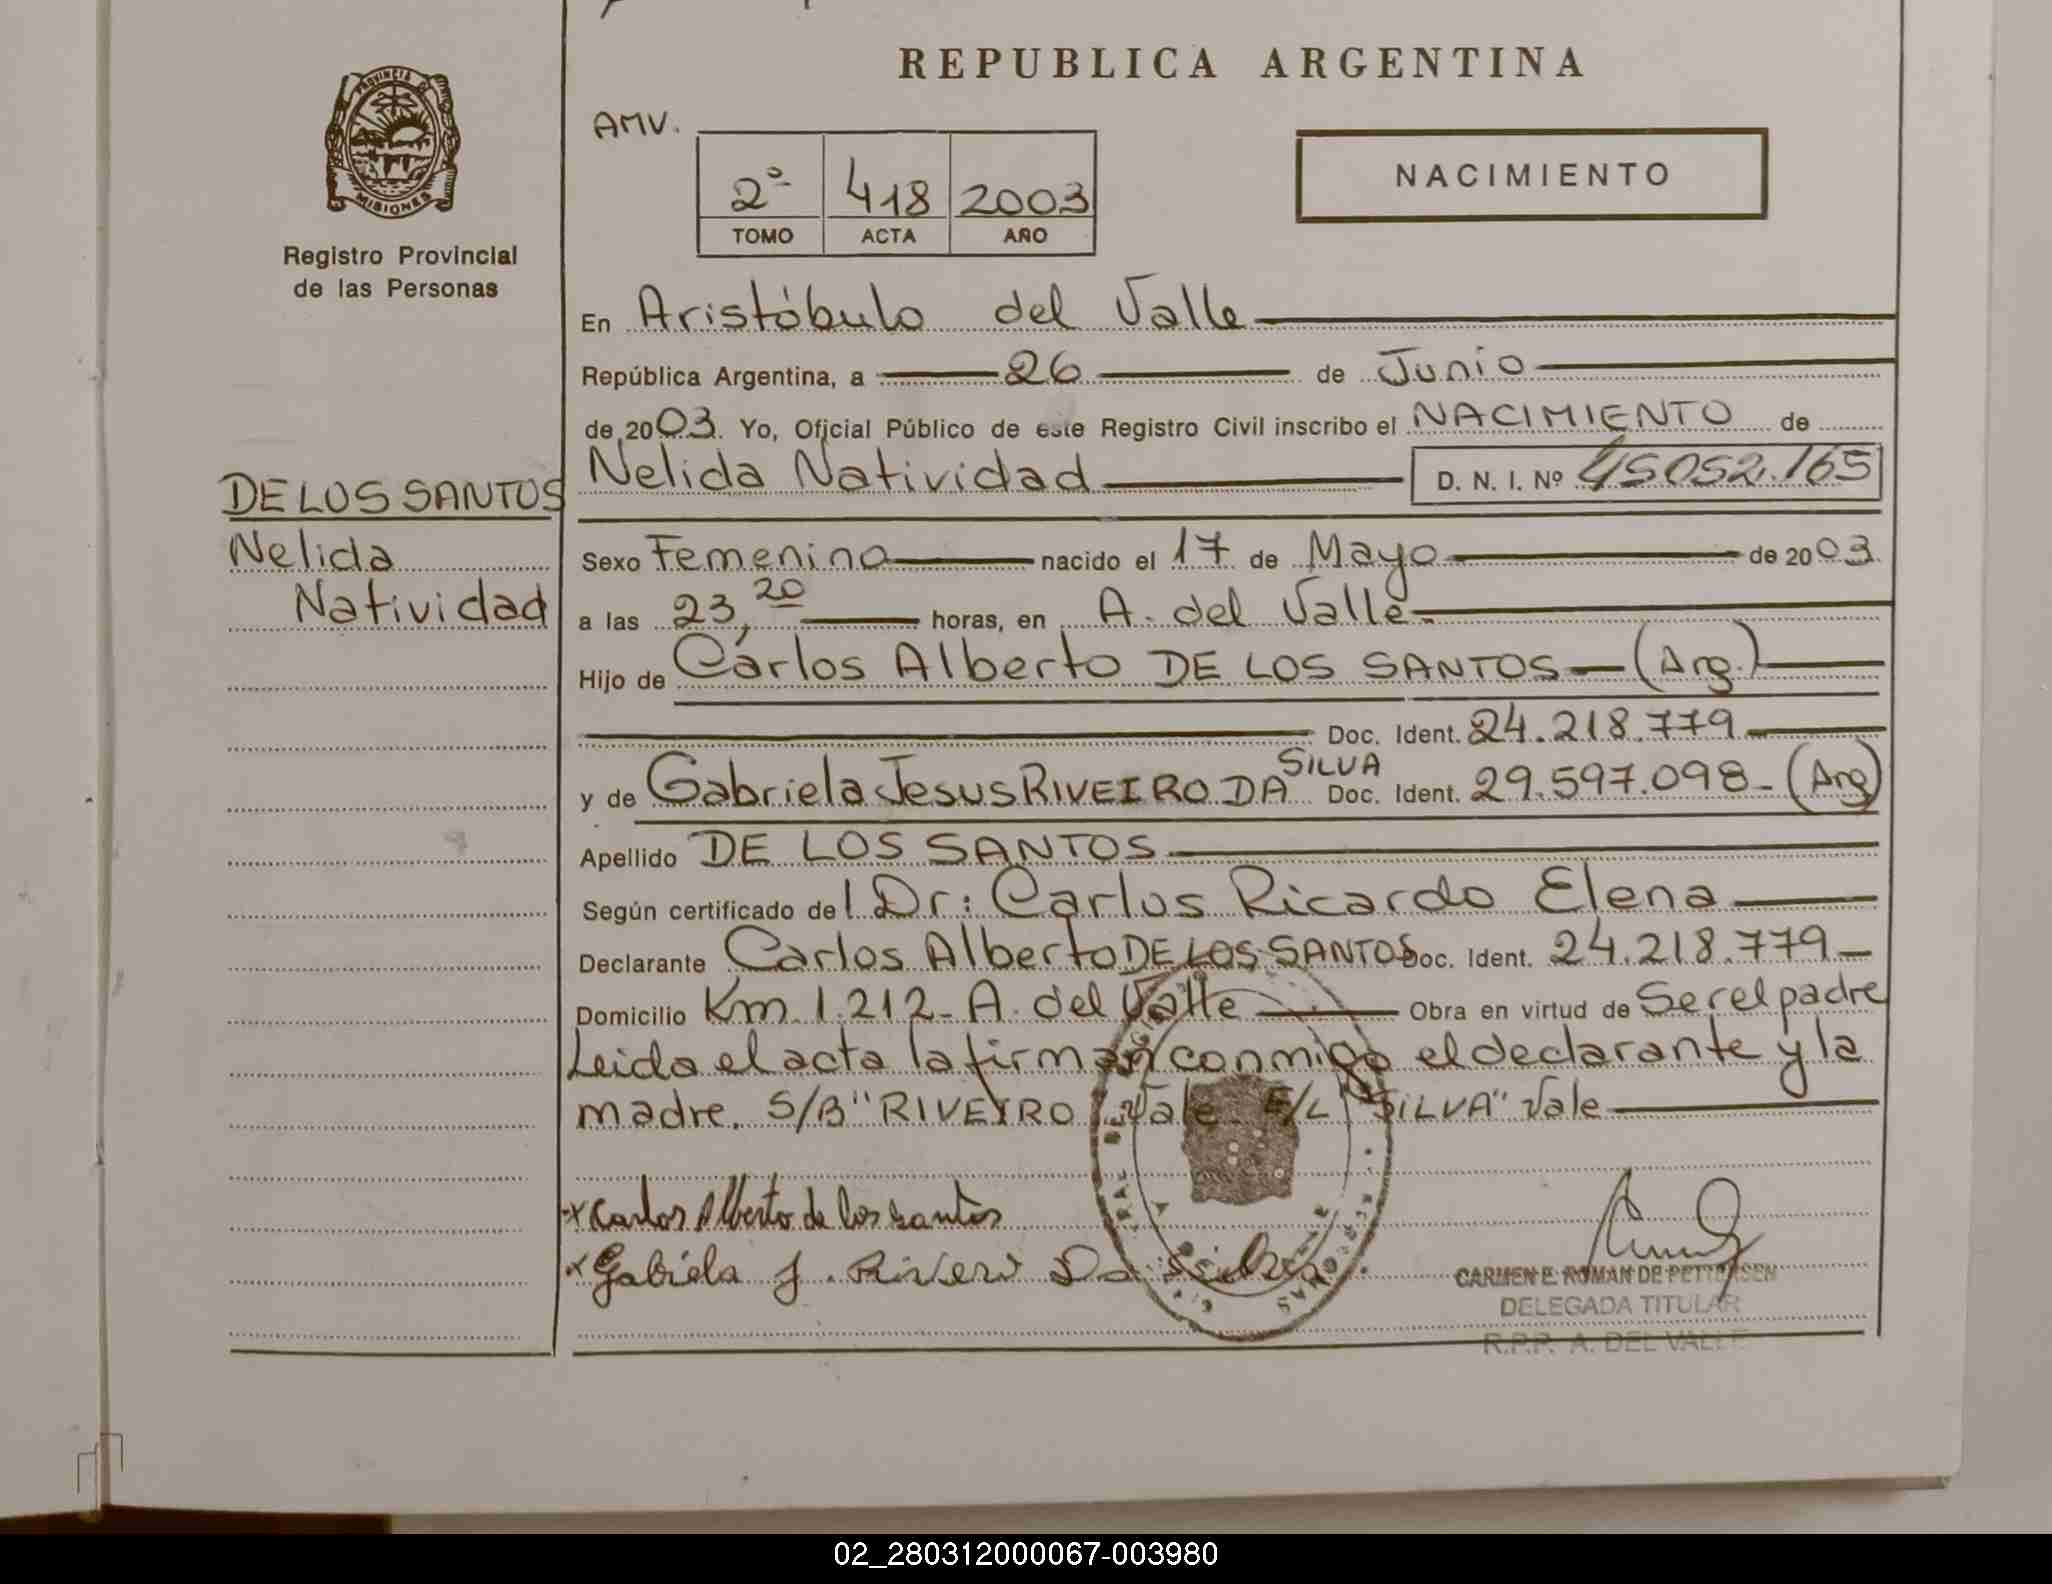 REPUBLICA ARGENTINA
PROVINCIA DE MISIONES
Registro Provincial
de las Personas
AMV.
2º 418 2003
TOMO ACTA AÑO
NACIMIENTO
En Aristóbulo del Valle
República Argentina, a 26 de Junio
de 2003. Yo, Oficial Público de este Registro Civil inscribo el NACIMIENTO de
Nelida Natividad D. N. I. Nº 45052.165
DE LOS SANTOS
Nelida
Natividad
Sexo Femenino nacido el 17 de Mayo de 2003
a las 23,20 horas, en A. del Valle
Hijo de Carlos Alberto DE LOS SANTOS (Arg.)
Doc. Ident. 24.218.779
y de Gabriela Jesus RIVEIRO DA SILVA Doc. Ident. 29.597.098 - (Arg)
Apellido DE LOS SANTOS
Según certificado del Dr: Carlos Ricardo Elena
Declarante Carlos Alberto DE LOS SANTOS Doc. Ident. 24.218.779
Domicilio Km 1.212 - A. del Valle Obra en virtud de Ser el padre
Leida el acta la firman conmigo el declarante y la
madre. S/B "RIVEIRO" Vale E/L "SILVA" Vale
x Carlos Alberto de los santos
x Gabriela J. Rivero Da Silva
CARMEN E. ROMAN DE PETTERSEN
DELEGADA TITULAR
R.P.P. A. DEL VALLE
02_280312000067-003980